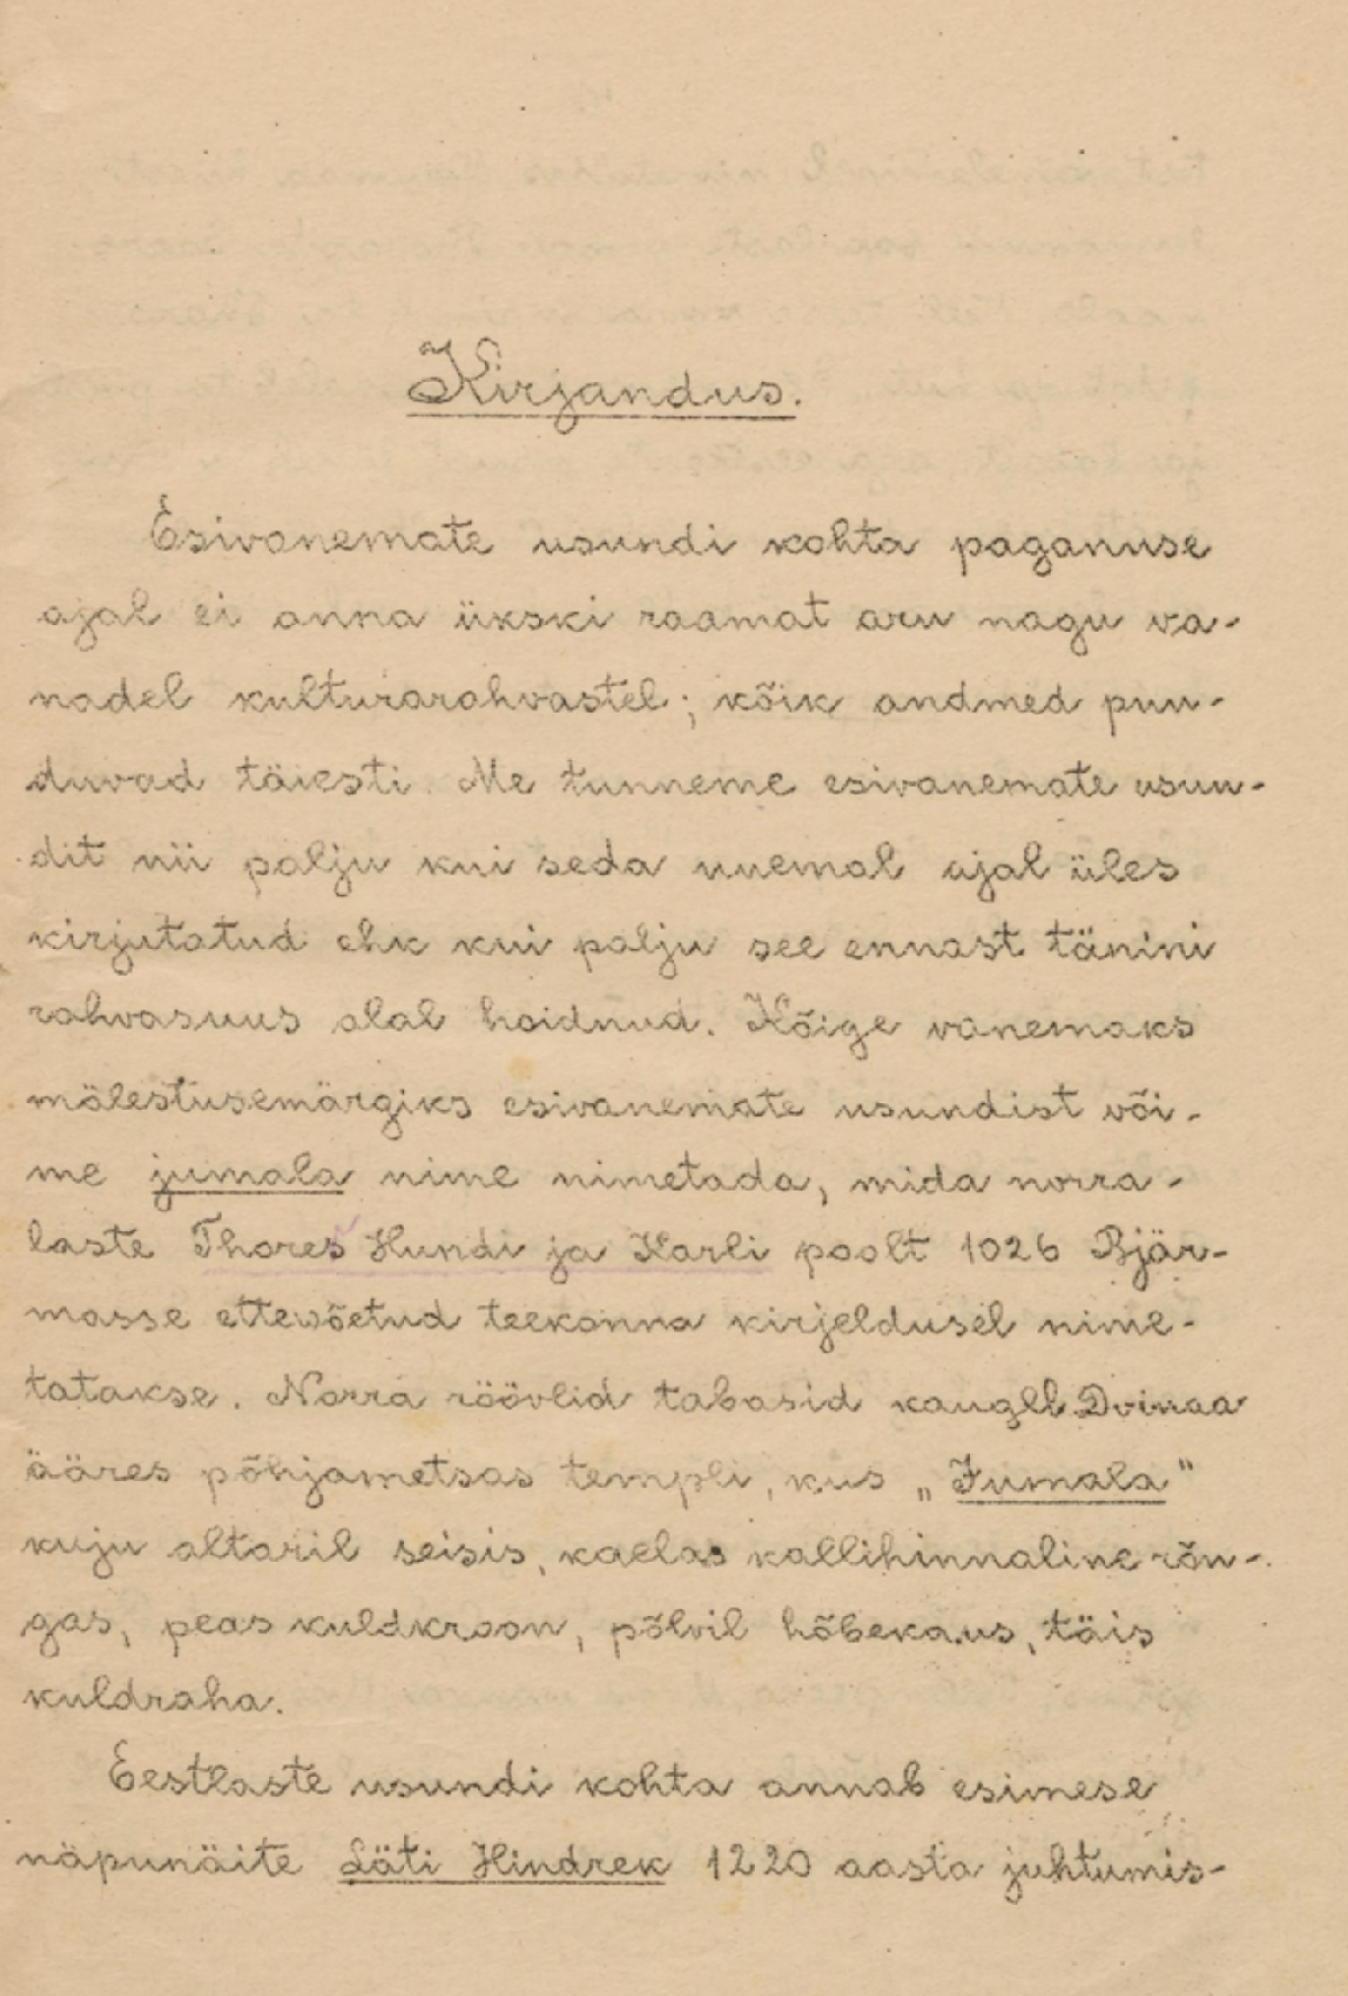 Kirjandus.
Esivanemate usundi kohta paganuse
ajal ei anna ükski raamat aru nagu va-
nadel kulturarahvastel; kõik andmed puu-
duvad täiesti. Me tunneme esivanemate usun-
dit nii palju kui seda uuemal ajal üles
kirjutatud ehk kui palju see ennast tänini
rahvasuus alal hoidnud. Kõige vanemaks
mälestusemärgiks esivanemate usundist või-
me jumala nime nimetada, mida norra-
laste Thores Hundi ja Karli poolt 1026 Bjär-
masse ettevõetud teekonna kirjeldusel nime-
tatakse. Norra röövlid tabasid kaugel Dvinaa
ääres põhjametsas templi, kus „Jumala"
kuju altaril seisis, kaelas kallihinnaline rõn-
gas, peas kuldkroon, põlvil hõbekauss, täis
kuldraha.
Eestlaste usundi kohta annab esimese
näpunäite Läti Hindrek 1220 aasta juhtumis-